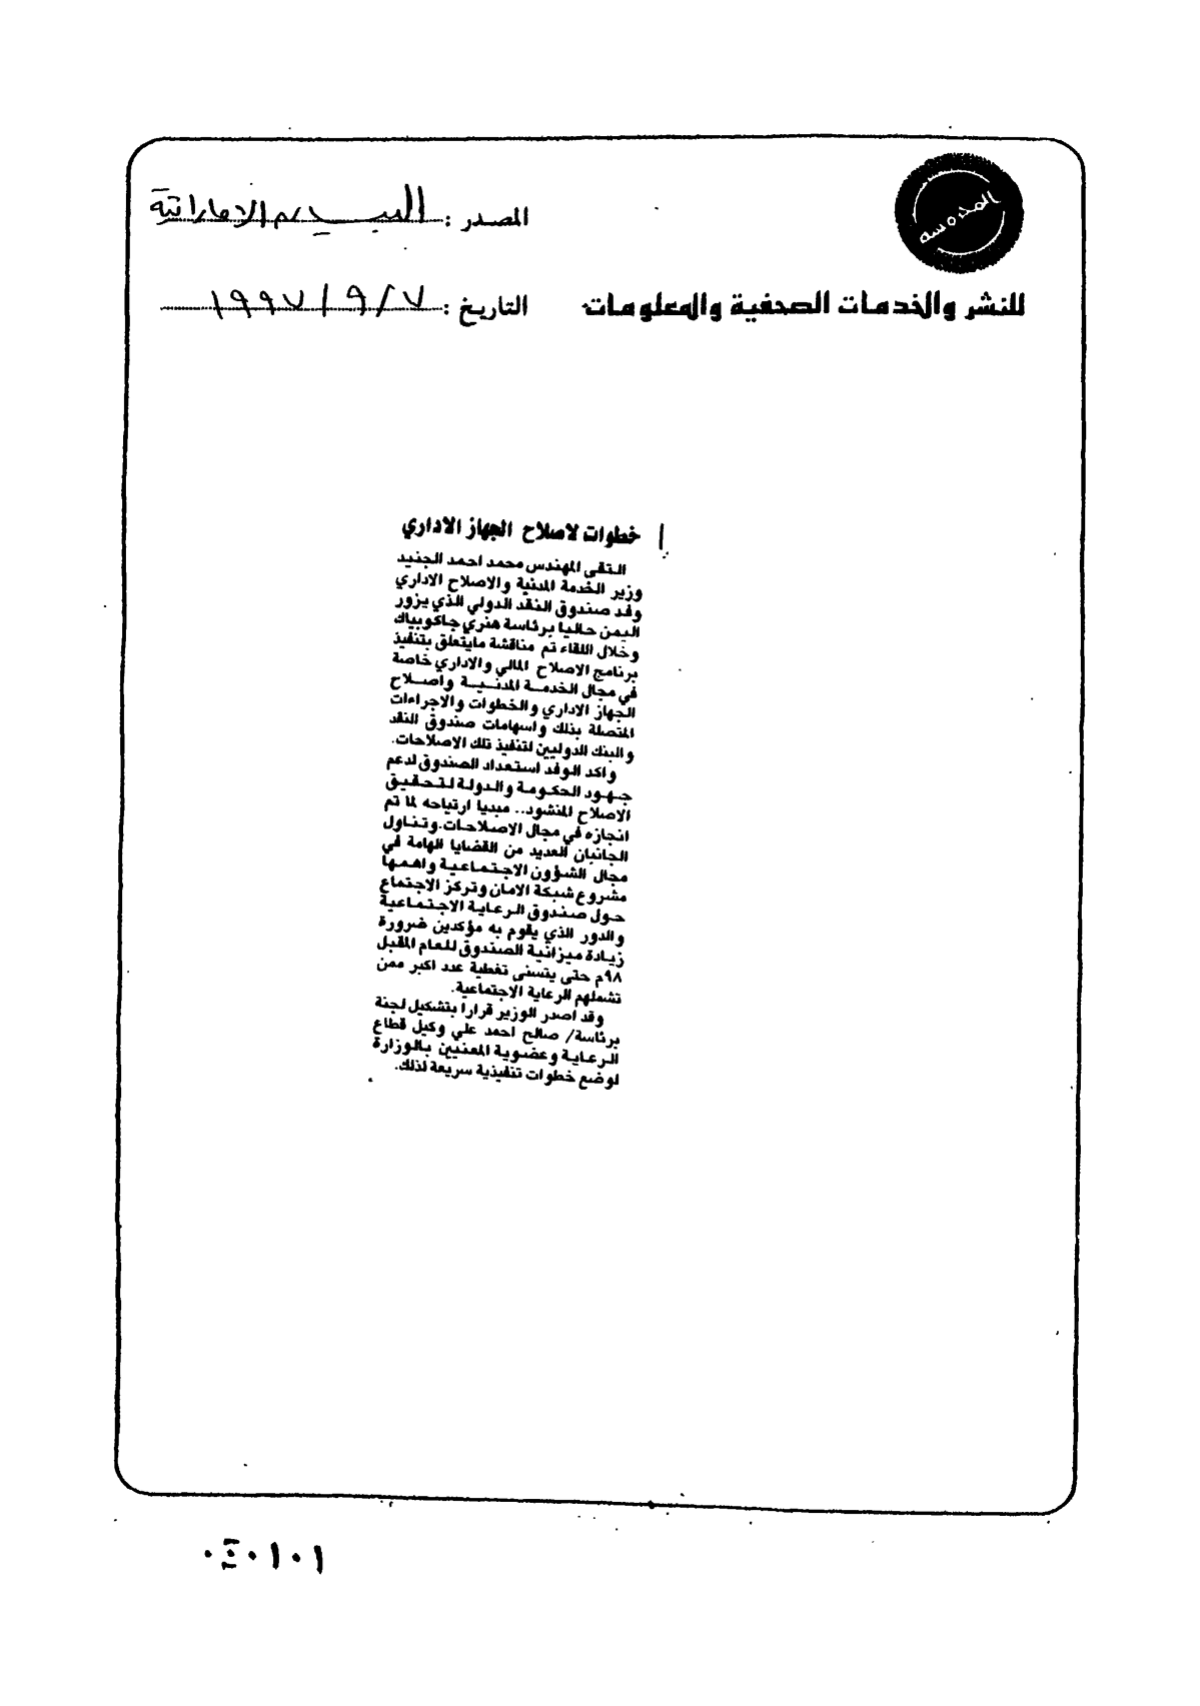 المحروسة
المصدر : البيان الاماراتية
للنشر والخدمات الصحفية والمعلومات
التاريخ : ١٩٩٧/٩/٧
خطوات لاصلاح الجهاز الاداري
التقى المهندس محمد احمد الجنيد
وزير الخدمة المدنية والاصلاح الاداري
وفد صندوق النقد الدولي الذي يزور
اليمن حاليا برئاسة هنري جاكوبياك
وخلال اللقاء تم مناقشة مايتعلق بتنفيذ
برنامج الاصلاح المالي والاداري خاصة
في مجال الخدمة المدنية واصلاح
الجهاز الاداري والخطوات والاجراءات
المتصلة بذلك واسهامات صندوق النقد
والبنك الدوليين لتنفيذ تلك الاصلاحات.
واكد الوفد استعداد الصندوق لدعم
جهود الحكومة والدولة لتحقيق
الاصلاح المنشود.. مبديا ارتياحه لما تم
انجازه في مجال الاصلاحات.وتناول
الجانبان العديد من القضايا الهامة في
مجال الشؤون الاجتماعية واهمها
مشروع شبكة الامان وتركز الاجتماع
حول صندوق الرعاية الاجتماعية
والدور الذي يقوم به مؤكدين ضرورة
زيادة ميزانية الصندوق للعام المقبل
٩٨م حتى يتسنى تغطية عدد اكبر ممن
تشملهم الرعاية الاجتماعية.
وقد اصدر الوزير قرارا بتشكيل لجنة
برئاسة/ صالح احمد علي وكيل قطاع
الرعاية وعضوية المعنيين بالوزارة
لوضع خطوات تنفيذية سريعة لذلك.